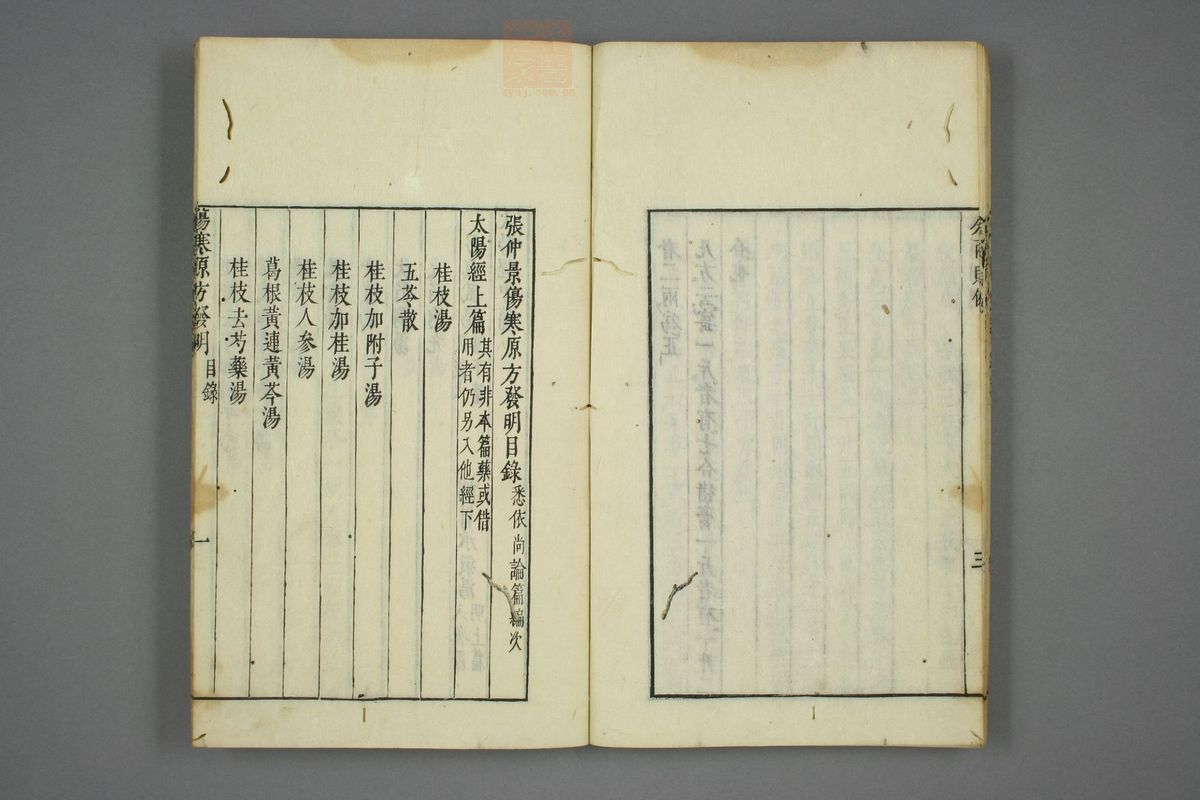 張仲景傷寒原方發明目錄悉依尚論篇編次
太陽經上篇其有非本篇藥或借
用者仍另入他經下
桂枝湯
五苓散
桂枝加附子湯
桂枝加桂湯
桂枝人參湯
葛根黃連黃芩湯
桂枝去芍藥湯
傷寒原方發明 目錄 一
三